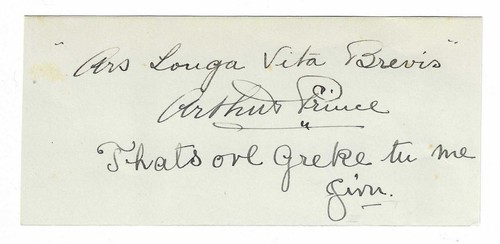 "Ars Longa Vita Brevis"
Arthur Prince
Thats ovl Greke tu me
Jim.